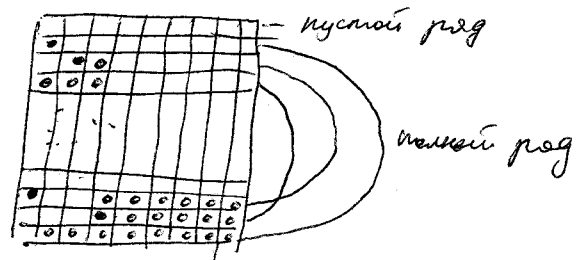 пустой ряд
полный ряд